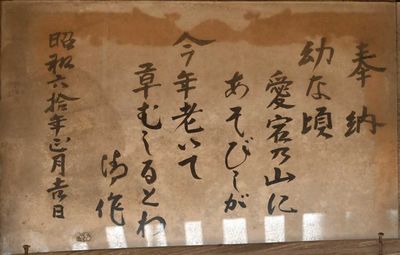 奉納
幼な頃
愛宕乃山に
あそびしが
今年老いて
草むしるとわ
清作
昭和六拾年正月吉日